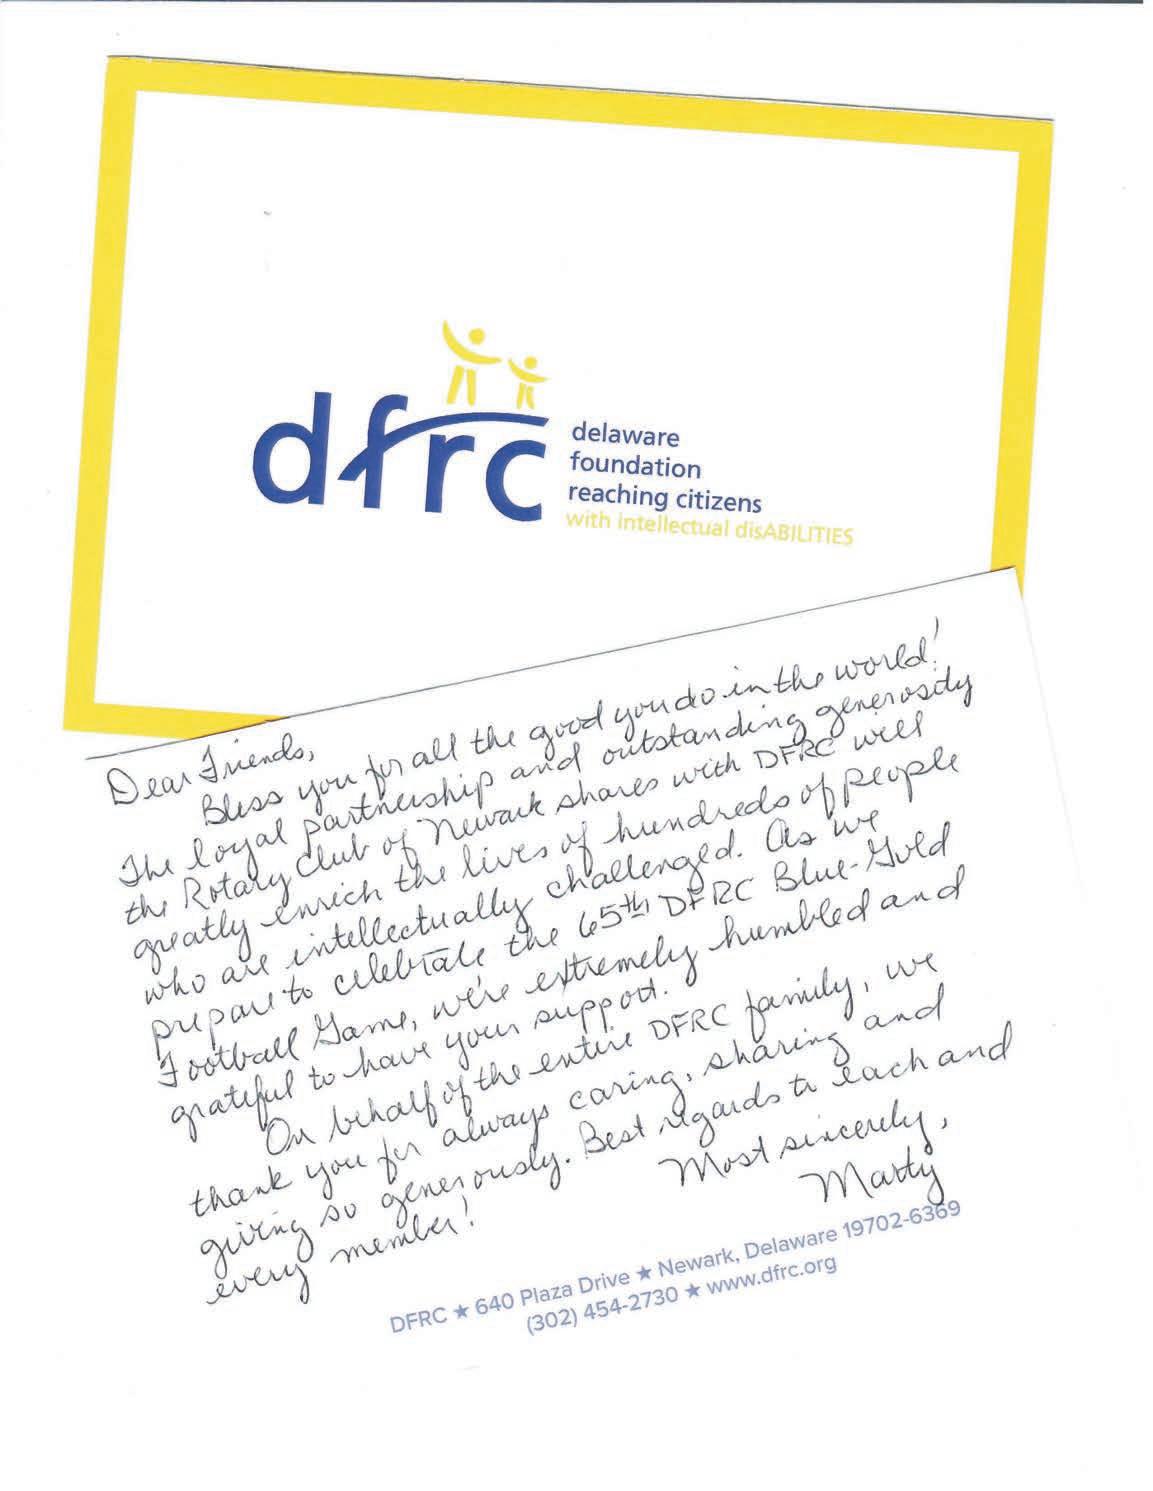 dfrc
delaware
foundation
reaching citizens
with intellectual disABILITIES
Dear Friends,
Bless you for all the good you do in the world!
The loyal partnership and outstanding generosity
the Rotary Club of Newark shares with DFRC will
greatly enrich the lives of hundreds of people
who are intellectually challenged. As we
prepare to celebrate the 65th DFRC Blue-Gold
Football Game, we're extremely humbled and
grateful to have your support.
On behalf of the entire DFRC family, we
thank you for always caring, sharing and
giving so generously. Best regards to each and
every member!
Most sincerely,
Marty
DFRC ★ 640 Plaza Drive ★ Newark, Delaware 19702-6369
(302) 454-2730 ★ www.dfrc.org